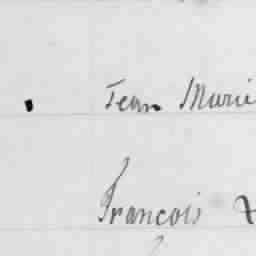 Jean Marie
Francois